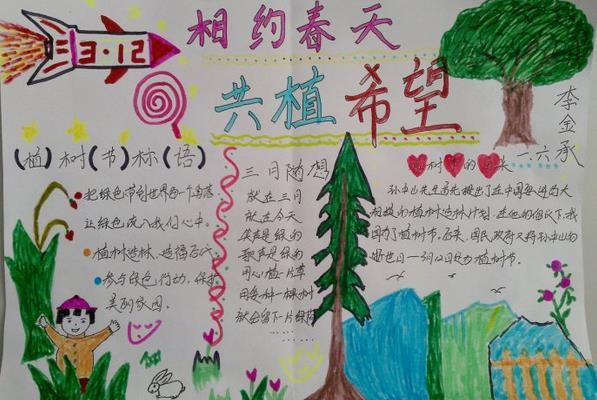 相约春天
3·12
共植希望
李金承
一.六
(植)树(节)标(语)
把绿色带到世界每一个角落
让绿色流入我们心中。
植树造林,造福后代。
参与绿色行动,保护
美丽家园。
三月随想
就在三月
就在今天
笑声是绿的
歌声是绿的
用心植一片草
用爱种一棵树
就会留下一片绿荫
……
树 的 来
孙中山先生首先提出了在中国每进
植树造林计划。在他的倡议下,我
国有了植树节。后来,国民政府又将孙中山的
逝世日—3月12日定为植树节。